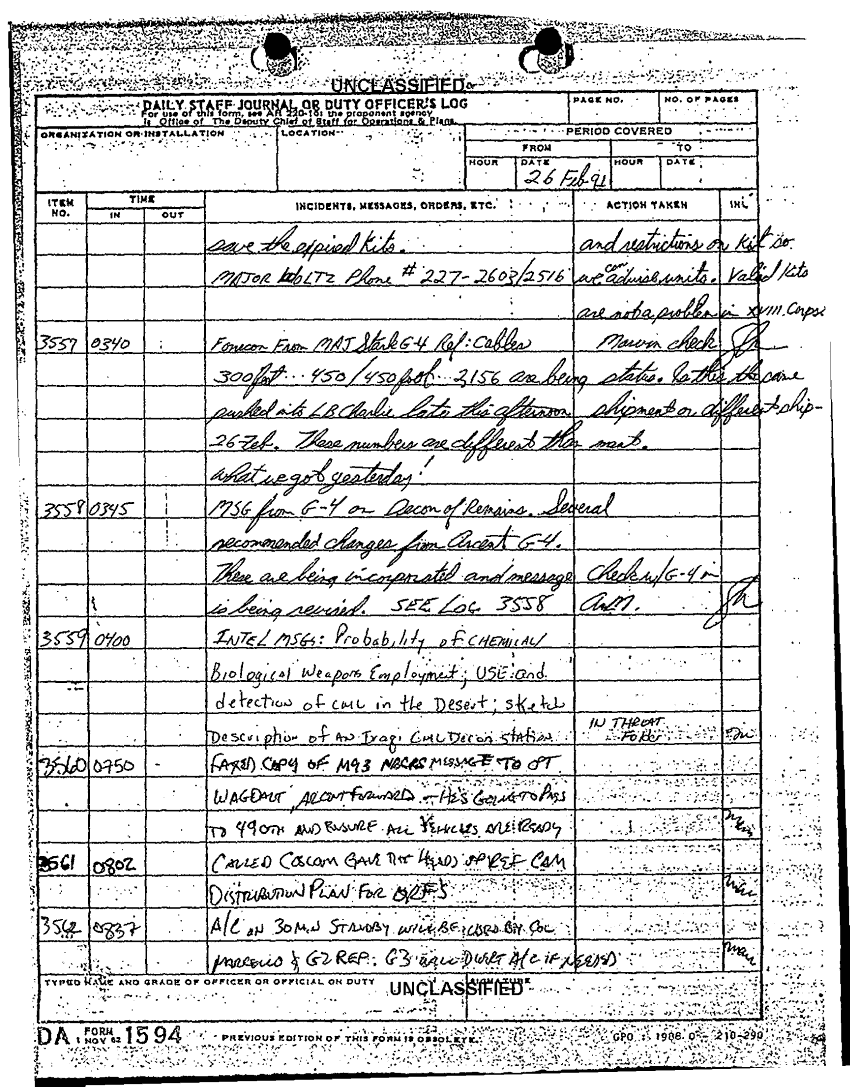 UNCLASSIFIED
DAILY STAFF JOURNAL OR DUTY OFFICER'S LOG
For use of this form, see AR 220-15; the proponent agency
is Office of The Deputy Chief of Staff for Operations & Plans.
PAGE NO. NO. OF PAGES
ORGANIZATION OR INSTALLATION LOCATION PERIOD COVERED
FROM TO
HOUR DATE HOUR DATE
26 Feb 91
ITEM NO. TIME INCIDENTS, MESSAGES, ORDERS, ETC. ACTION TAKEN INL
IN OUT
save the expired kits. and restrictions on kit so
MAJOR Phone # 227-2603/2516 we can advise units. Valid kits
are not a problem in XVIII Corps.
3557 0340 Fonecon From MAJ Stark G-4 Ref: Cables check
300 foot 450/450 foot 2156 are being status. Is this the same
pushed into LB Charlie late this afternoon shipment or different ship-
26 Feb. These numbers are different than ment.
what we got yesterday!
3558 0345 MSG from G-4 on Decon of Remains. Several
recommended changes from Arcent G-4.
These are being incorporated and message Check w/G-4 in
is being revised. SEE LOG 3558 A.M.
3559 0400 INTEL MSGs: Probability of CHEMICAL/
Biological Weapons Employment; USE and
detection of CML in the Desert; sketch
Description of AN Iraqi CML Decon station IN THREAT Folder
3560 0750 - FAXED COPY OF M93 MESSAGE TO
ARCENT FORWARD - HE'S GOING TO PASS
TO 490TH AND ENSURE ALL VEHICLES ARE READY
3561 0802 CALLED COSCOM GAVE THEM HEADS UP REF CAM
DISTRIBUTION PLAN FOR
3562 0837 A/C ON 30 MIN STANDBY WILL BE USED BY COL
MARCELLO & G2 REP. G3 WILL DIVERT A/C IF NEEDED
TYPED NAME AND GRADE OF OFFICER OR OFFICIAL ON DUTY SIGNATURE
UNCLASSIFIED
DA FORM 1 NOV 62 1594 PREVIOUS EDITION OF THIS FORM IS OBSOLETE. GPO : 1986 O - 210-290